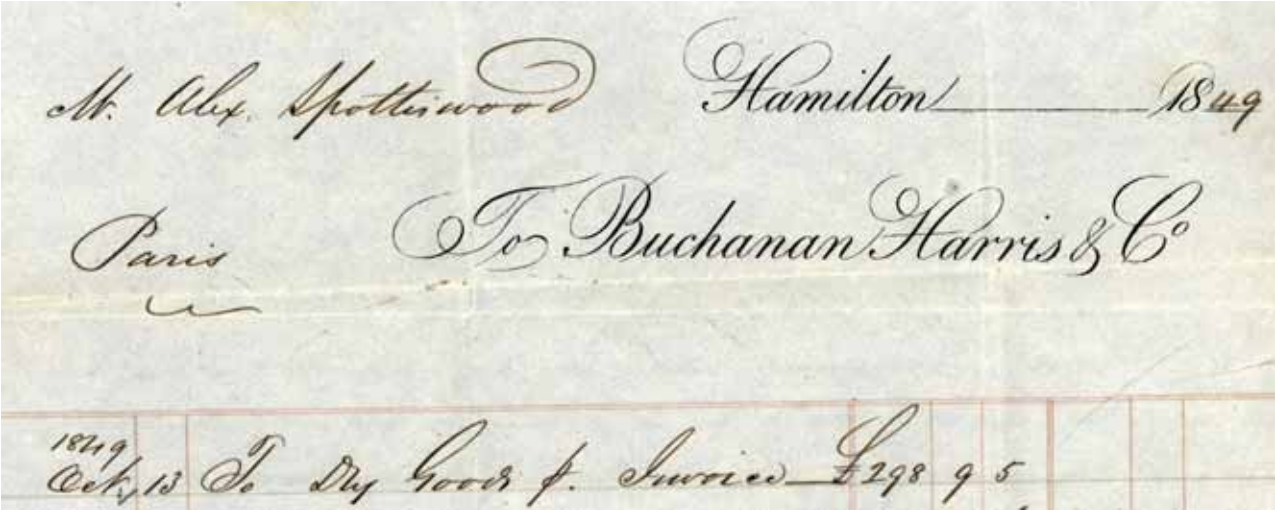 Mr. Alex. Spottiswood Hamilton 1849
Paris To Buchanan Harris & Co
1849
Oct 13 To Dry Goods p. Invoice £298 9 5